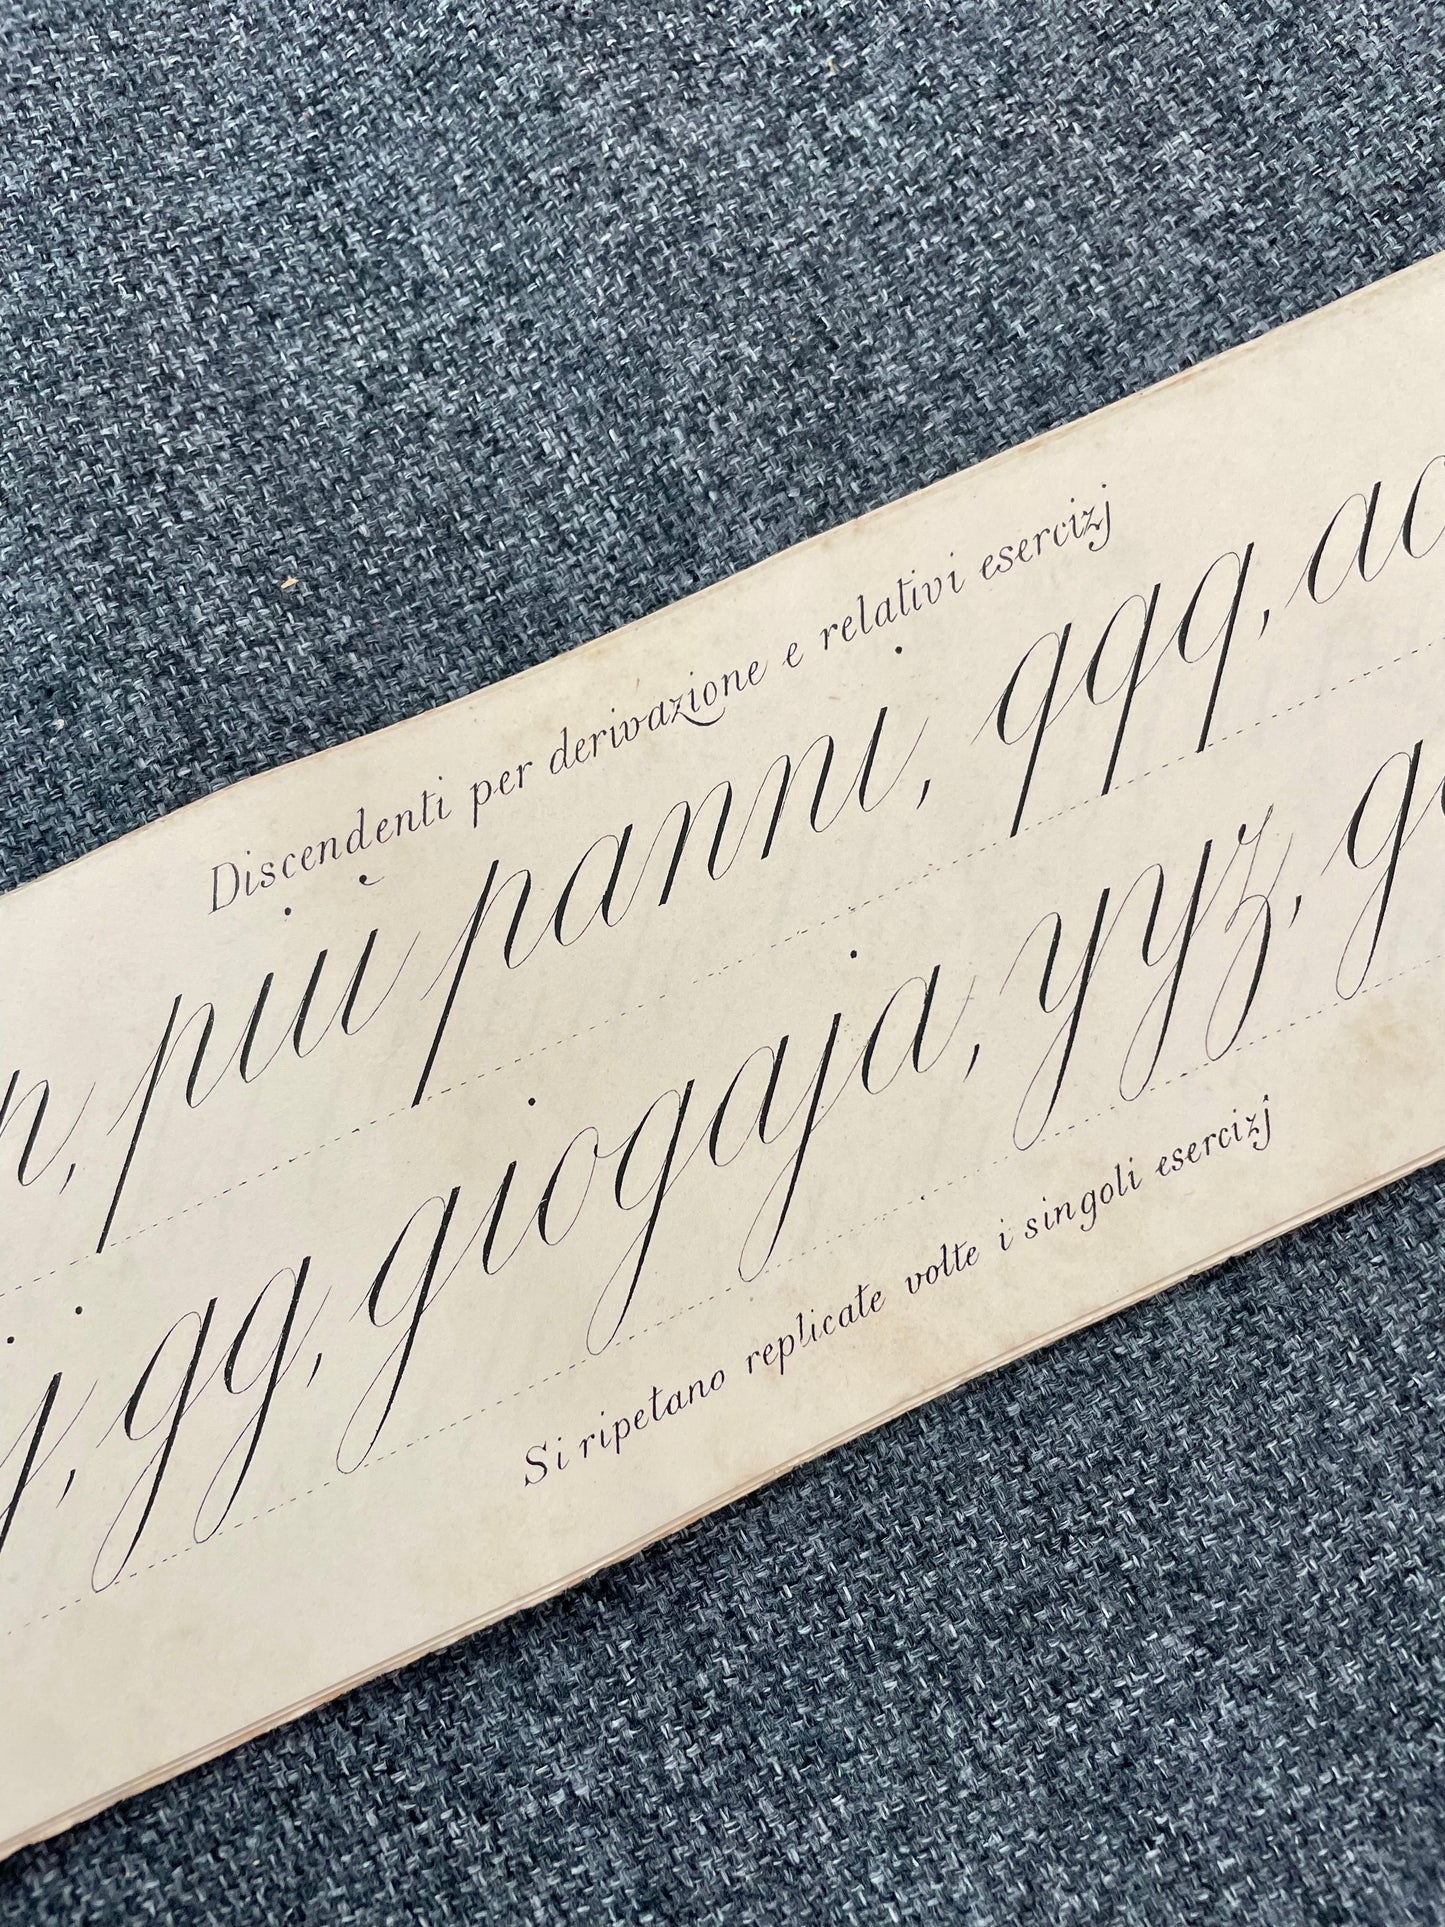 Discendenti per derivazione e relativi esercizj
n, più panni, qqq, ac
j, gg, giogaja, yyz, g
Si ripetano replicate volte i singoli esercizj